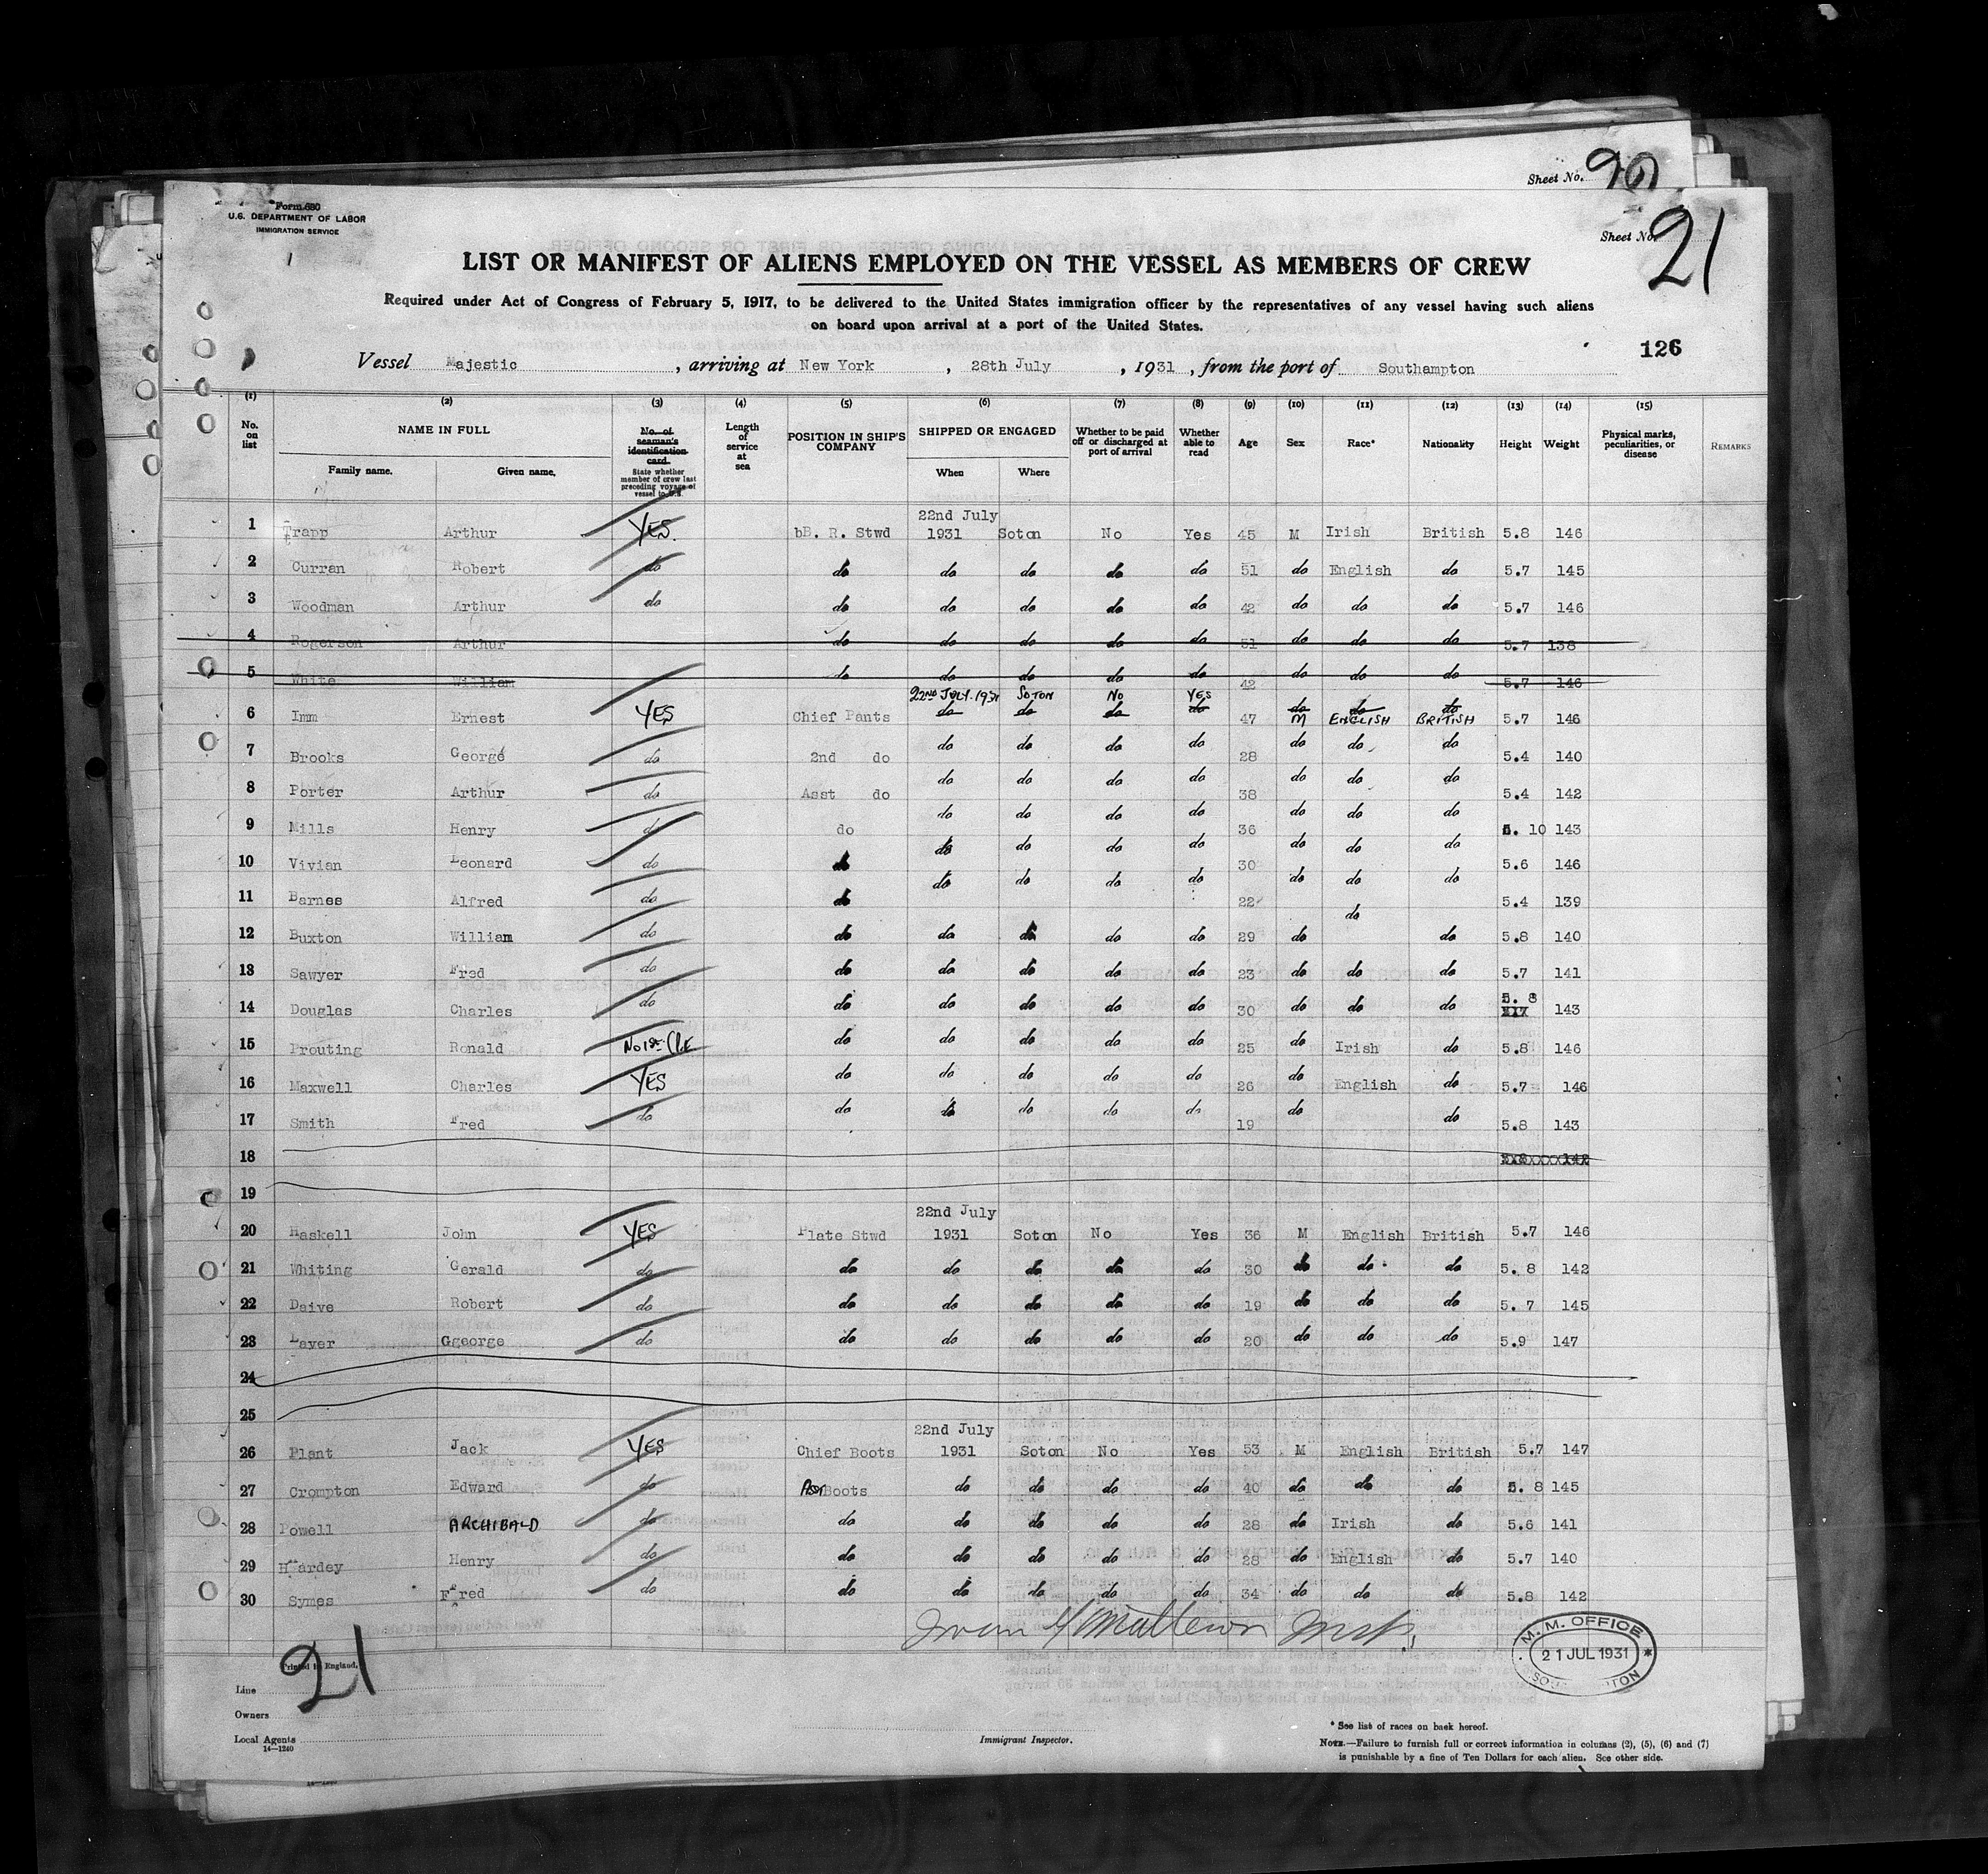 Sheet No. 20
Form 680
U.S. DEPARTMENT OF LABOR
IMMIGRATION SERVICE
Sheet No. 21
LIST OR MANIFEST OF ALIENS EMPLOYED ON THE VESSEL AS MEMBERS OF CREW
Required under Act of Congress of February 5, 1917, to be delivered to the United States immigration officer by the representatives of any vessel having such aliens
on board upon arrival at a port of the United States.
126
Vessel Majestic, arriving at New York, 28th July, 1931, from the port of Southampton
(1) (2) (3) (4) (5) (6) (7) (8) (9) (10) (11) (12) (13) (14) (15)
No. on list NAME IN FULL Family name. Given name. No. of seaman's identification card. State whether member of crew last preceding voyage of vessel to U.S. Length of service at sea POSITION IN SHIP'S COMPANY SHIPPED OR ENGAGED When Where Whether to be paid off or discharged at port of arrival Whether able to read Age Sex Race* Nationality Height Weight Physical marks, peculiarities, or disease REMARKS
22nd July
1 Trapp Arthur YES. bB. R. Stwd 1931 Soton No Yes 45 M Irish British 5.8 146
2 Curran Robert do do do do do do 51 do English do 5.7 145
3 Woodman Arthur do do do do do do 42 do do do 5.7 146
4 Rogerson Arthur do do do do do 51 do do do 5.7 138
5 White William do do do do do 42 do do do 5.7 146
22ND JULY.1931 SOTON NO YES
6 Imm Ernest YES Chief Pants do do do do 47 do M do ENGLISH do BRITISH 5.7 146
7 Brooks George do 2nd do do do do do 28 do do do 5.4 140
8 Porter Arthur do Asst do do do do do 38 do do do 5.4 142
9 Mills Henry do do do do do do 36 do do do 5. 10 143
10 Vivian Leonard do do do do do do 30 do do do 5.6 146
11 Barnes Alfred do do do do do do 22 do do do 5.4 139
12 Buxton William do do do do do do 29 do do do 5.8 140
13 Sawyer Fred do do do do do do 23 do do do 5.7 141
14 Douglas Charles do do do do do do 30 do do do 5. 8 143
15 Prouting Ronald do do do do do 25 do Irish do 5.8 146
16 Maxwell Charles YES do do do do do 26 do English do 5.7 146
17 Smith Fred do do do do do do 19 do do 5.8 143
18 142
19
22nd July
20 Haskell John YES Plate Stwd 1931 Soton No Yes 36 M English British 5.7 146
21 Whiting Gerald do do do do do do 30 do do do 5. 8 142
22 Daive Robert do do do do do do 19 do do do 5. 7 145
23 Layer Ggeorge do do do do do do 20 do do do 5.9 147
24
25
22nd July
26 Plant Jack YES Chief Boots 1931 Soton No Yes 53 M English British 5.7 147
27 Crompton Edward do Asst Boots do do do do 40 do do do 5. 8 145
28 Powell ARCHIBALD do do do do do do 28 do Irish do 5.6 141
29 Hardey Henry do do do do do do 28 do English do 5.7 140
30 Symes Fred do do do do do do 34 do do do 5.8 142
M. M. OFFICE
21 JUL 1931
21
Printed in England.
Line
Owners
Local Agents
14—1240
Immigrant Inspector.
* See list of races on back hereof.
NOTE.—Failure to furnish full or correct information in columns (2), (5), (6) and (7)
is punishable by a fine of Ten Dollars for each alien. See other side.